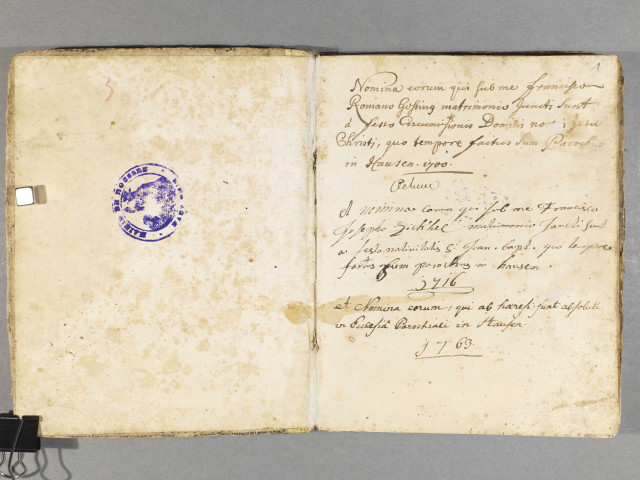 3
1
Nomina eorum qui sub me Francisco
Romano Gossing matrimonio Juncti sunt
à festo Circumcisionis Domini nos: Jesu
Christi, quo tempore factus sum Parochus
in Hausen. 1700.
et nomina eorum qui sub me Francisco
Josepho matrimonio Juncti sunt
a festo nativitatis S: Joan: Bapt. quo tempore
factus sum parochus in hausen
1716
et Nomina eorum, qui ab haeresi sunt absoluti
in Ecclesiâ Parochiali in Hausen
1769.
MAIRIE DE HOUSSEN